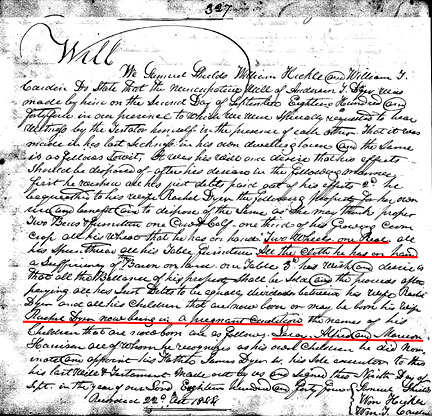 327
Will
We Samuel Shields William Hickle and William T.
Cardin Do State that the nuncupative Will of Anderson T. Dyer was
made by him on the Second Day of September Eighteen Hundred and
forty four in our presence to which we were specially requested to bear
witness by the Testator himself in the presence of each other that it was
made in his last sickness in his own dwelling house and the Same
is as follows towit. It was his will and desire that his effects
Should be disposed of after his decease in the following manner
first he wished all his just debts paid out of his effects 2nd he
bequeathed to his wife Rachel Dyer the following property for her own
use and benefit and to dispose of the Same as she may think proper
Two Beds & furniture one Cow & Calf one third of his Growing Corn
crop all his Wheat that he has on hand Two Wheels one Reel all
his table furniture All the Cloth he has on hand
a Sufficiency of Bacon on hand one Table 3d his wish and desire is
that all the Balance of his property Shall be Sold and the proceeds after
paying all his Just Debts to be equally divided between his wife Rachel
Dyer and all his Children that are now born or may be born his wife
Rachel Dyer now being in a pregnant Condition the names of his
Children that are now born are as follows Alfred and Marion
Harrison all of whom he recognizes as his own Children he did nom-
inate and appoint his James Dyer as his Sole executor to this
his last Will & Testament Made out by us and Signed this Ninth Day of
Sept. in the year of our Lord Eighteen Hundred and forty four
Samuel Shields
Wm Hickle
Wm T. Cardin
Recorded 22nd Oct. 1844